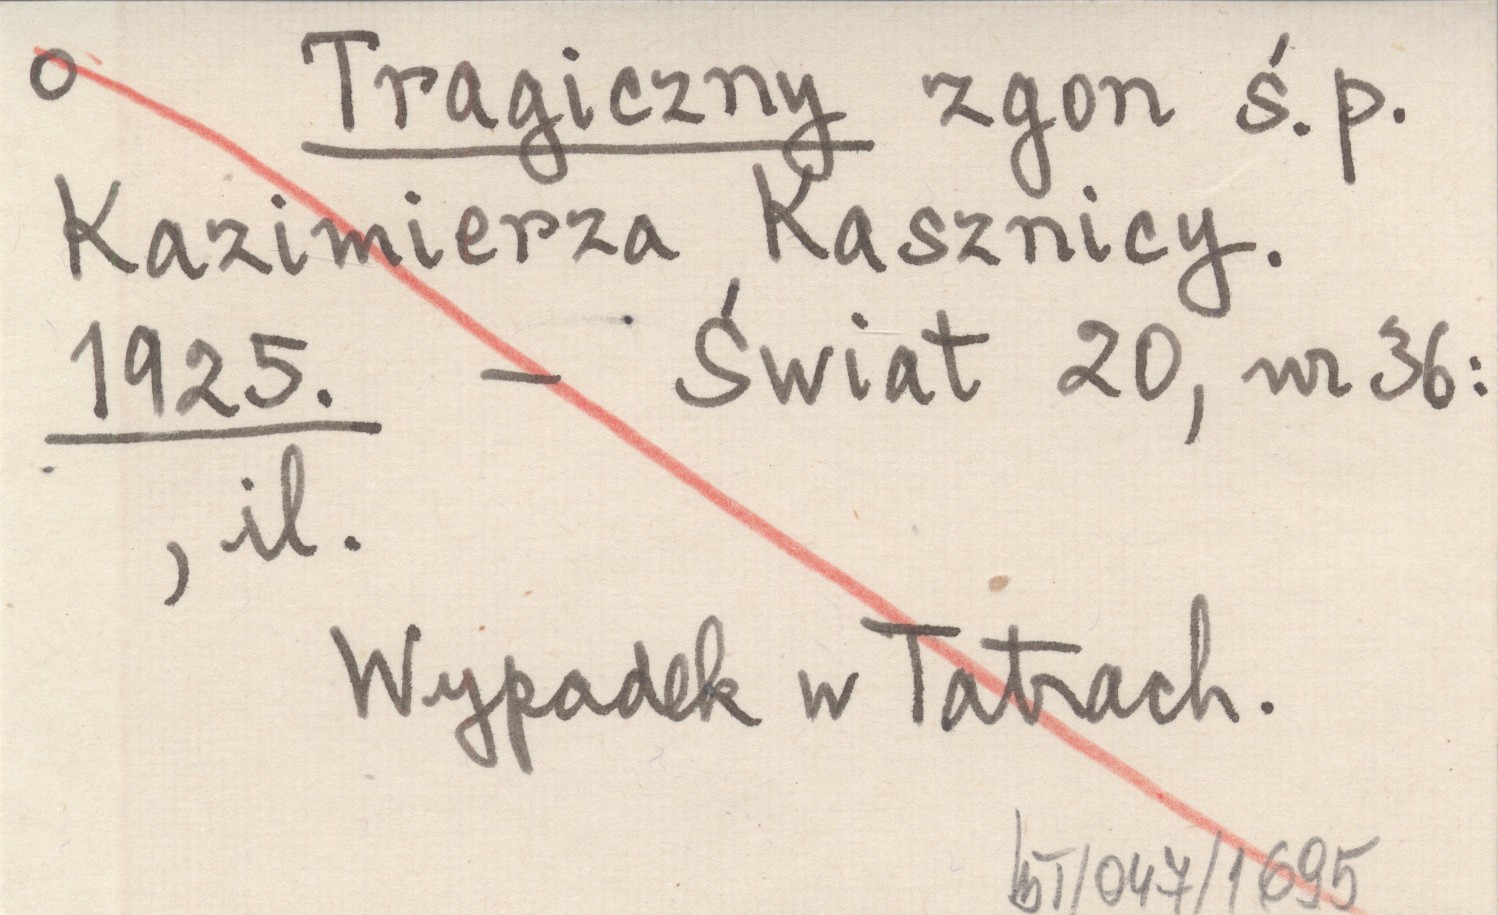 o Tragiczny zgon ś.p.
Kazimierza Kasznicy.
1925. — Świat 20, nr 36:
, il.
Wypadek w Tatrach.
bT/047/1695